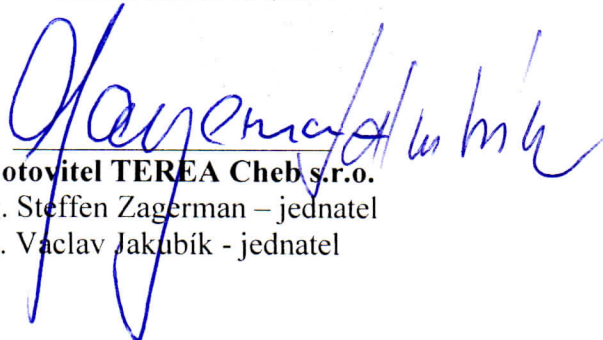 otovitel TEREA Cheb s.r.o.
. Steffen Zagerman – jednatel
. Václav Jakubík - jednatel